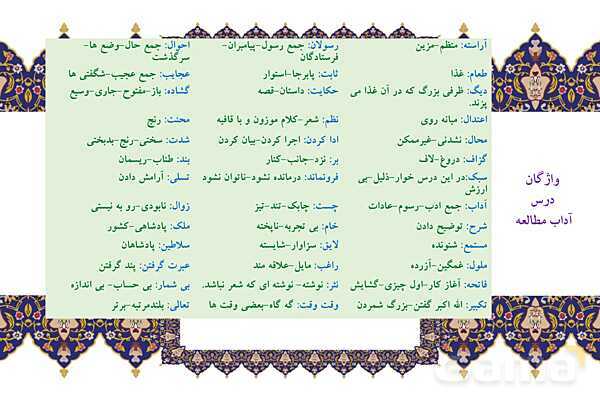 آراسته: منظم-مزین
رسولان: جمع رسول-پیامبران-
فرستادگان
احوال: جمع حال-وضع ها-
سرگذشت
طعام: غذا
ثابت: پابرجا-استوار
عجایب: جمع عجیب-شگفتی ها
دیگ: ظرفی بزرگ که در آن غذا می
پزند.
حکایت: داستان-قصه
گشاده: باز-مفتوح-جاری-وسیع
اعتدال: میانه روی
نظم: شعر-کلام موزون و با قافیه
محنت: رنج
محال: نشدنی-غیرممکن
ادا کردن: اجرا کردن-بیان کردن
شدت: سختی-رنج-بدبختی
گزاف: دروغ-لاف
بر: نزد-جانب-کنار
بند: طناب-ریسمان
سبک:در این درس خوار-ذلیل-بی
ارزش
فرونماند: درمانده نشود-ناتوان نشود
تسلی: آرامش دادن
آداب: جمع ادب-رسوم-عادات
چست: چابک-تند-تیز
زوال: نابودی-رو به نیستی
شرح: توضیح دادن
خام: بی تجربه-ناپخته
ملک: پادشاهی-کشور
مستمع: شنونده
لایق: سزاوار-شایسته
سلاطین: پادشاهان
ملول: غمگین-آزرده
راغب: مایل-علاقه مند
عبرت گرفتن: پند گرفتن
فاتحه: آغاز کار-اول چیزی-گشایش
نثر: نوشته-نوشته ای که شعر نباشد.
بی شمار: بی حساب-بی اندازه
تکبیر: الله اکبر گفتن-بزرگ شمردن
وقت وقت: گه گاه-بعضی وقت ها
تعالی: بلندمرتبه-برتر
واژگان
درس
آداب مطالعه
gama